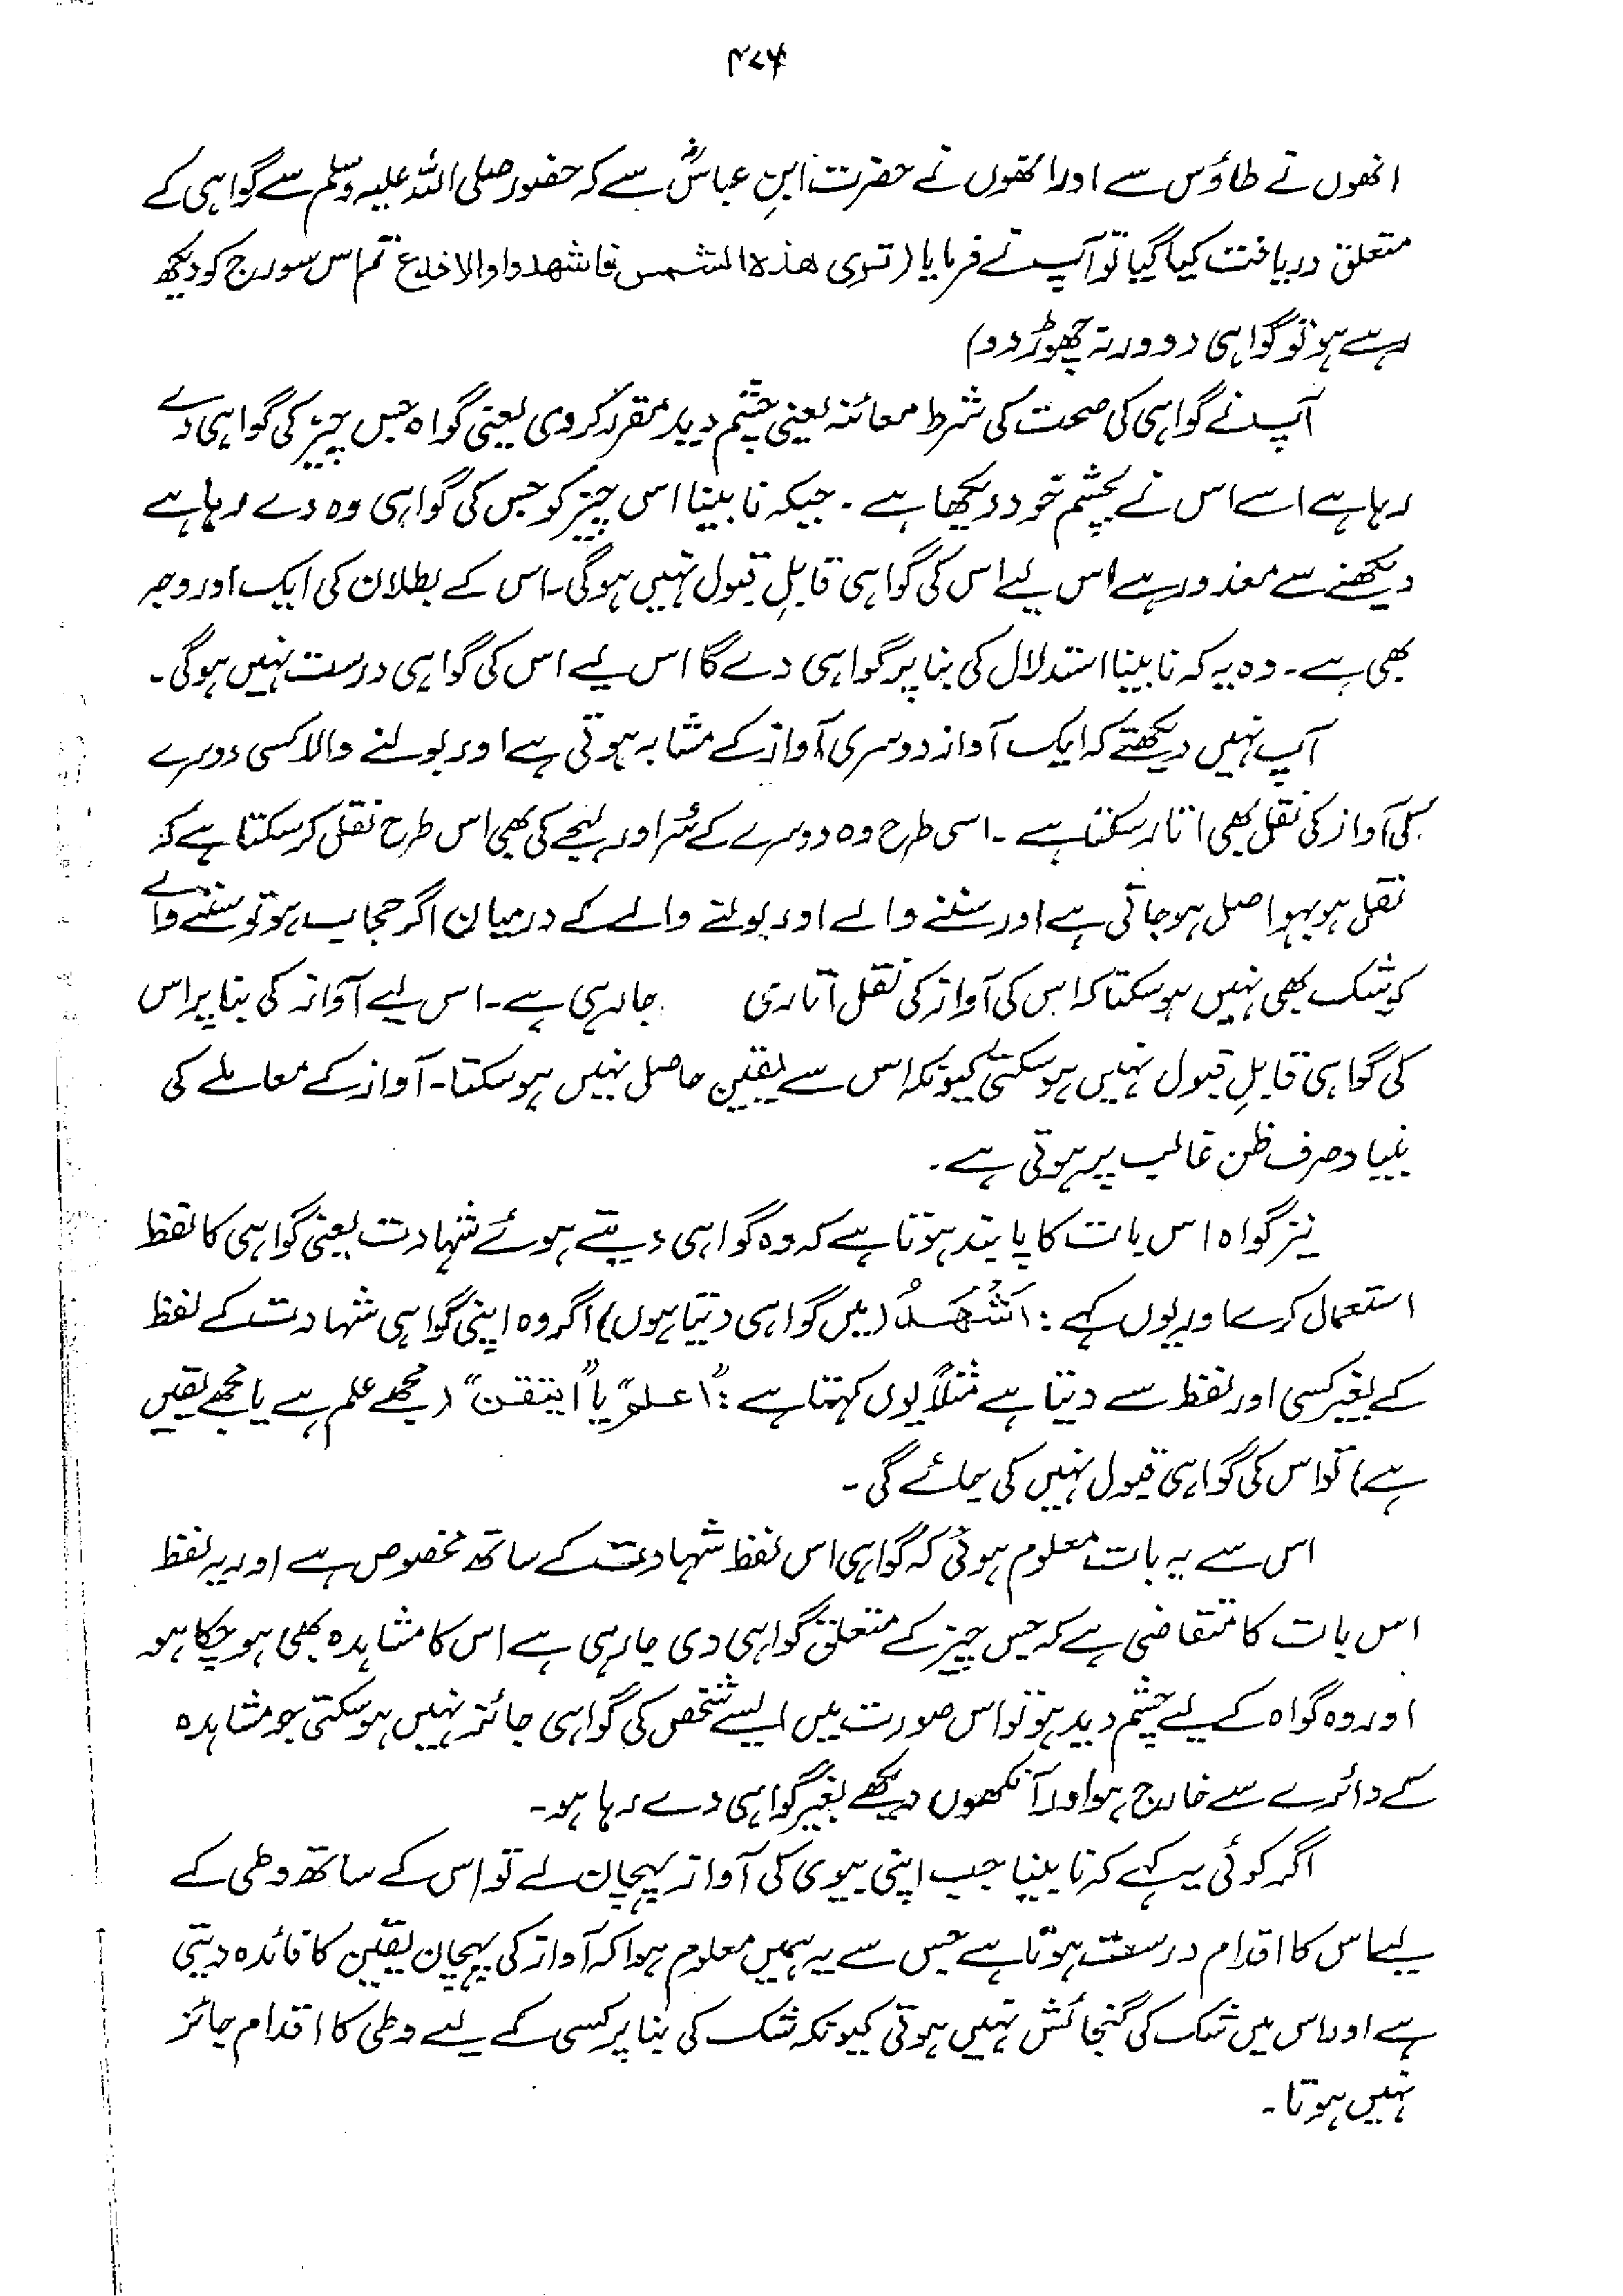 ۴۷۶
انھوں نے طاؤس سے اور انھوں نے حضرت ابنِ عباسؓ سے کہ حضور صلی اللہ علیہ وسلم سے گواہی کے
متعلق دریافت کیا گیا تو آپ نے فرمایا (ترٰی ھذہ الشمس فاشھد وا والا فدع تم اس سورج کو دیکھ
رہے ہو تو گواہی دو ورنہ چھوڑ دو)
آپ نے گواہی کی صحت کی شرط معائنہ یعنی چشم دید مقرر کر دی یعنی گواہ جس چیز کی گواہی دے
رہا ہے اسے اس نے بچشم خود دیکھا ہے ۔ جبکہ نابینا اس چیز کو جس کی گواہی وہ دے رہا ہے
دیکھنے سے معذور ہے اس لیے اس کی گواہی قابلِ قبول نہیں ہوگی۔ اس کے بطلان کی ایک اور وجہ
بھی ہے ۔ وہ یہ کہ نابینا استدلال کی بنا پر گواہی دے گا اس لیے اس کی گواہی درست نہیں ہوگی ۔
آپ نہیں دیکھتے کہ ایک آواز دوسری آواز کے مشابہ ہوتی ہے اور بولنے والا کسی دوسرے
کی آواز کی نقل بھی اتار سکتا ہے ۔ اسی طرح وہ دوسرے کے سُر اور لہجے کی بھی اس طرح نقل کر سکتا ہے کہ
نقل ہو بہو اصل ہو جاتی ہے اور سننے والے اور بولنے والے کے درمیان اگر حجاب ہو تو سننے والے
کو شک بھی نہیں ہو سکتا کہ اس کی آواز کی نقل اتاری جا رہی ہے ۔ اس لیے آواز کی بنا پر اس
کی گواہی قابلِ قبول نہیں ہو سکتی کیونکہ اس سے یقین حاصل نہیں ہو سکتا۔ آواز کے معاملے کی
بنیاد صرف ظن غالب پر ہوتی ہے ۔
نیز گواہ اس بات کا پابند ہوتا ہے کہ وہ گواہی دیتے ہوئے شہادت یعنی گواہی کا لفظ
استعمال کرے اور یوں کہے : اَشْھَدُ (میں گواہی دیتا ہوں) اگر وہ اپنی گواہی شہادت کے لفظ
کے بغیر کسی اور لفظ سے دیتا ہے مثلاً یوں کہتا ہے : "اعلم" یا "ایتقن" (مجھے علم ہے یا مجھے یقین
ہے) تو اس کی گواہی قبول نہیں کی جائے گی ۔
اس سے یہ بات معلوم ہوئی کہ گواہی اس لفظ شہادت کے ساتھ مخصوص ہے اور یہ لفظ
اس بات کا متقاضی ہے کہ جس چیز کے متعلق گواہی دی جا رہی ہے اس کا مشاہدہ بھی ہو چکا ہو
اور وہ گواہ کے لیے چشم دید ہو تو اس صورت میں ایسے شخص کی گواہی جائز نہیں ہو سکتی جو مشاہدہ
کے دائرے سے خارج ہو اور آنکھوں دیکھے بغیر گواہی دے رہا ہو ۔
اگر کوئی یہ کہے کہ نابینا جب اپنی بیوی کی آواز پہچان لے تو اس کے ساتھ وطی کے
لیے اس کا اقدام درست ہوتا ہے جس سے یہ ہمیں معلوم ہوا کہ آواز کی پہچان یقین کا فائدہ دیتی
ہے اور اس میں شک کی گنجائش نہیں ہوتی کیونکہ شک کی بنا پر کسی کے لیے وطی کا اقدام جائز
نہیں ہوتا ۔